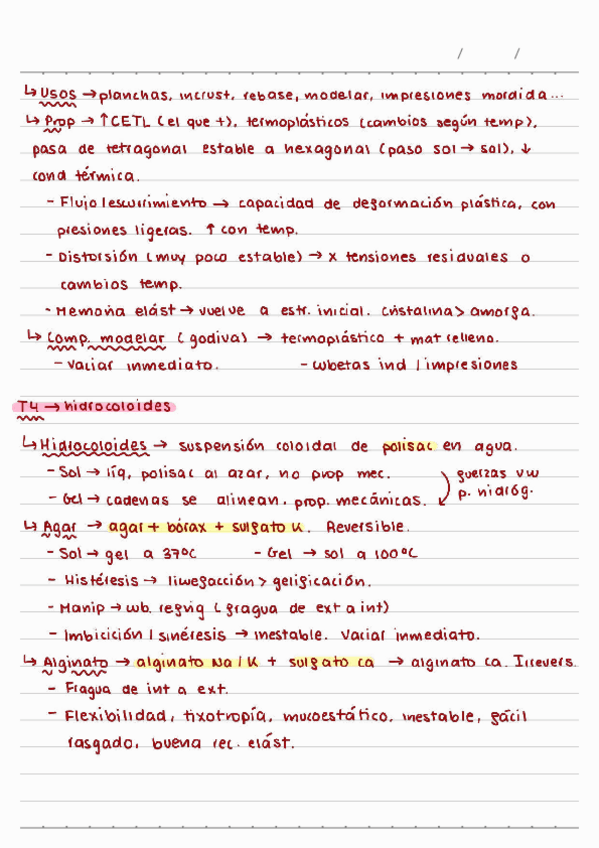 / /
↳ Usos → planchas, incrust, rebase, modelar, impresiones mordida...
↳ Prop → ↑CETL (el que +), termoplásticos (cambios según temp),
pasa de tetragonal estable a hexagonal (paso sol → sol), ↓
cond térmica.
- Flujo/escurrimiento → capacidad de deformación plástica, con
presiones ligeras. ↑ con temp.
- Distorsión (muy poco estable) → x tensiones residuales o
cambios temp.
- Memoria elást → vuelve a estr. inicial. Cristalina > amorfa.
↳ Comp. modelar (godiva) → termoplástico + mat relleno.
- Vaciar inmediato. - cubetas ind / impresiones
T4 → hidrocoloides
↳ Hidrocoloides → suspensión coloidal de polisac en agua.
- Sol → líq, polisac al azar, no prop mec.
- Gel → cadenas se alinean. prop. mecánicas.
fuerzas vw
p. hidróg.
↳ Agar → agar + bórax + sulfato K. Reversible.
- Sol → gel a 37ºC - Gel → sol a 100ºC
- Histéresis → licuefacción > gelificación.
- Manip → cub. refrig (fragua de ext a int)
- Imbicición / sinéresis → inestable. Vaciar inmediato.
↳ Alginato → alginato Na/K + sulfato ca → alginato ca. Irrevers.
- Fragua de int a ext.
- Flexibilidad, tixotropía, mucoestático, inestable, fácil
rasgado, buena rec. elást.